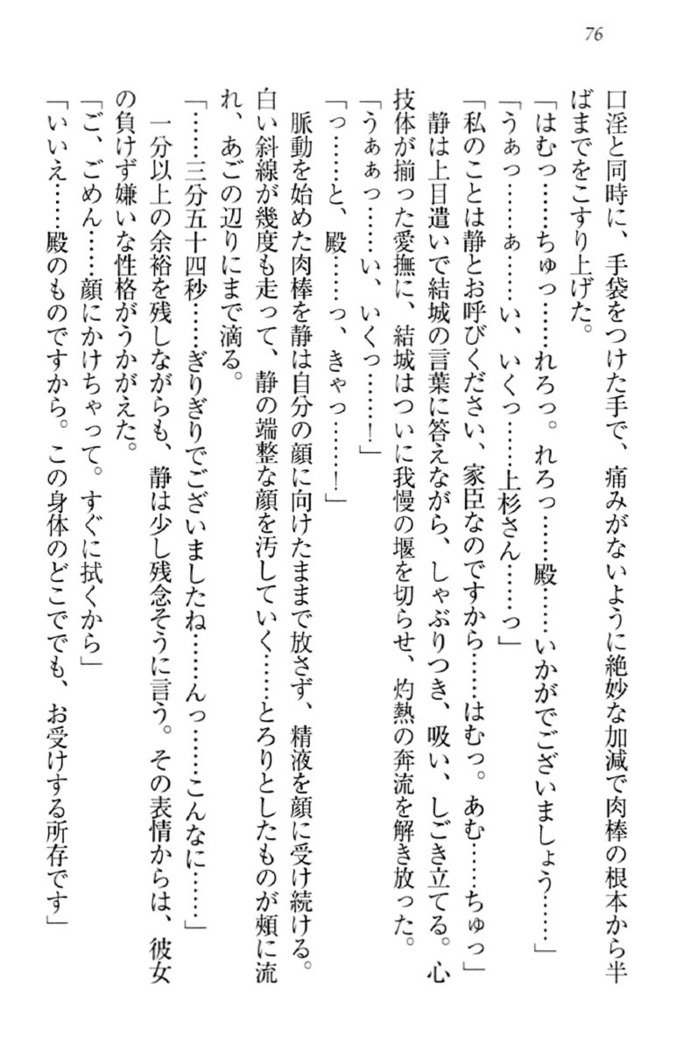 76
口淫と同時に、手袋をつけた手で、痛みがないように絶妙な加減で肉棒の根本から半
ばまでをこすり上げた。
「はむっ……ちゅっ……れろっ。れろっ……殿……いかがでございましょう……」
「うぁっ……ぁ……い、いくっ……上杉さん……っ」
「私のことは静とお呼びください、家臣なのですから……はむっ。あむ……ちゅっ」
静は上目遣いで結城の言葉に答えながら、しゃぶりつき、吸い、しごき立てる。心
技体が揃った愛撫に、結城はついに我慢の堰を切らせ、灼熱の奔流を解き放った。
「うぁぁっ……い、いくっ……！」
「っ……と、殿……っ、きゃっ……！」
脈動を始めた肉棒を静は自分の顔に向けたままで放さず、精液を顔に受け続ける。
白い斜線が幾度も走って、静の端整な顔を汚していく……とろりとしたものが頰に流
れ、あごの辺りにまで滴る。
「……三分五十四秒……ぎりぎりでございましたね……んっ……こんなに……」
一分以上の余裕を残しながらも、静は少し残念そうに言う。その表情からは、彼女
の負けず嫌いな性格がうかがえた。
「ご、ごめん……顔にかけちゃって。すぐに拭くから」
「いいえ……殿のものですから。この身体のどこでも、お受けする所存です」